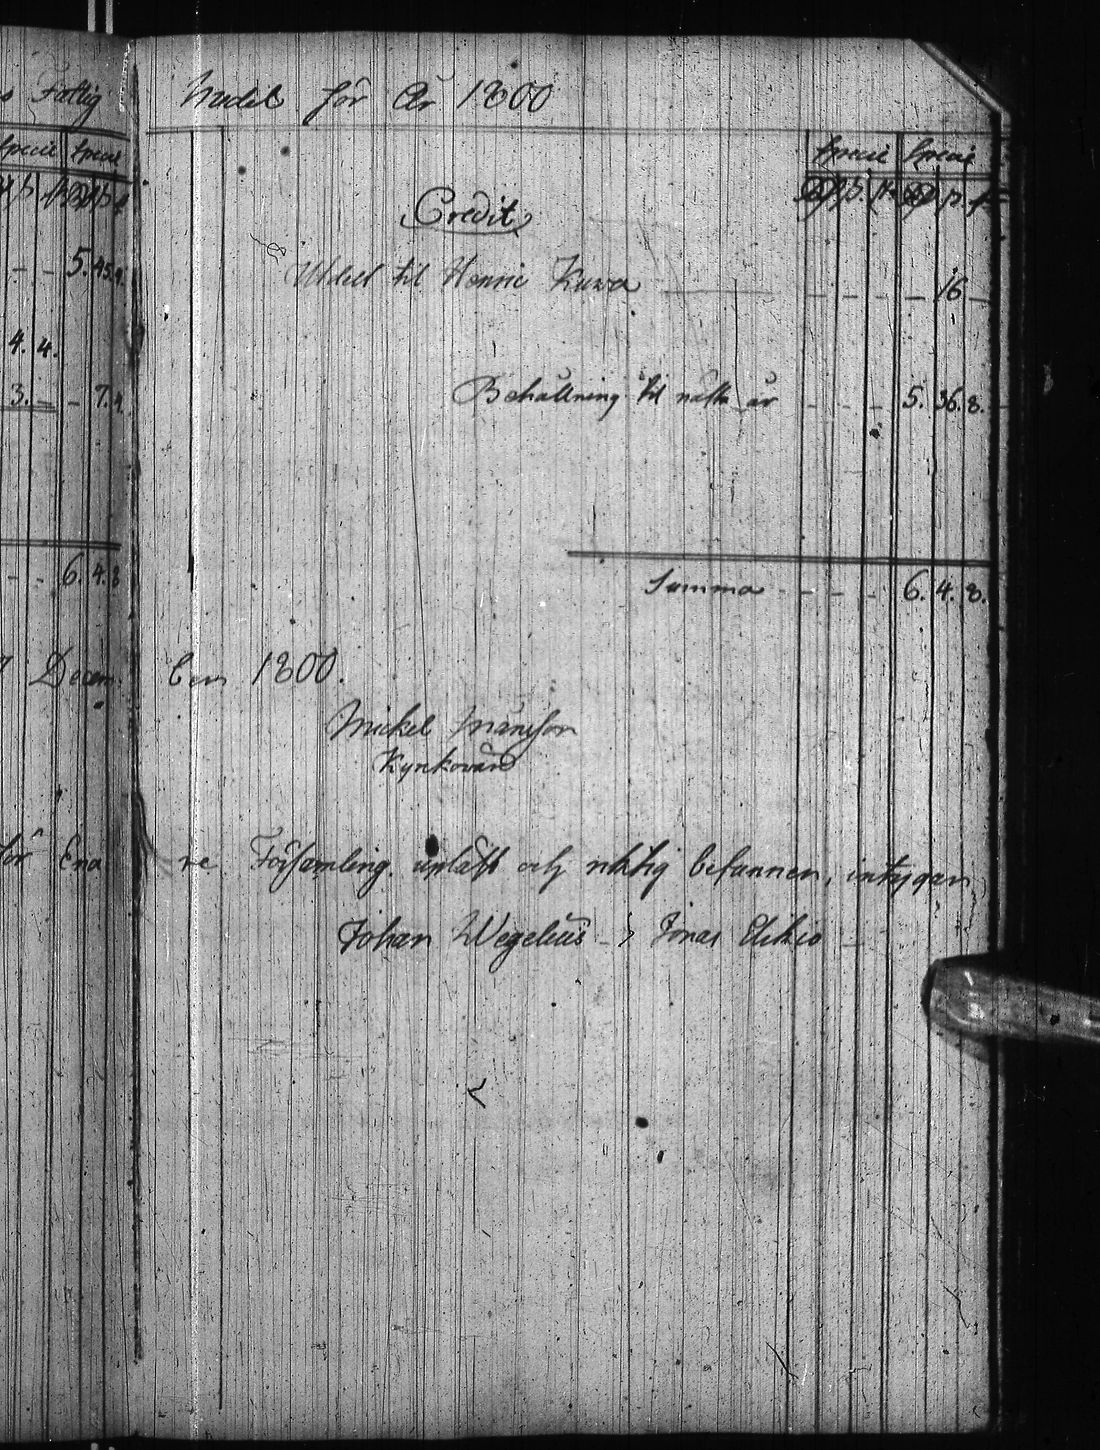 s Fattig
Medel för År 1800
Specie Specie
Specie Specie
Credit
5. 45. 4.
Utdelt til Henric Kuwa 16
4. 4.
3. 7. 4.
Behållning til näste år 5. 36. 8.
6. 4. 8
Summa 6. 4. 8.
Decem ber 1800.
Mickel Månsson
Kyrkovärd
för Ena re Församling upläst och riktig befunnen, intygar
Johan Wegelius Jonas